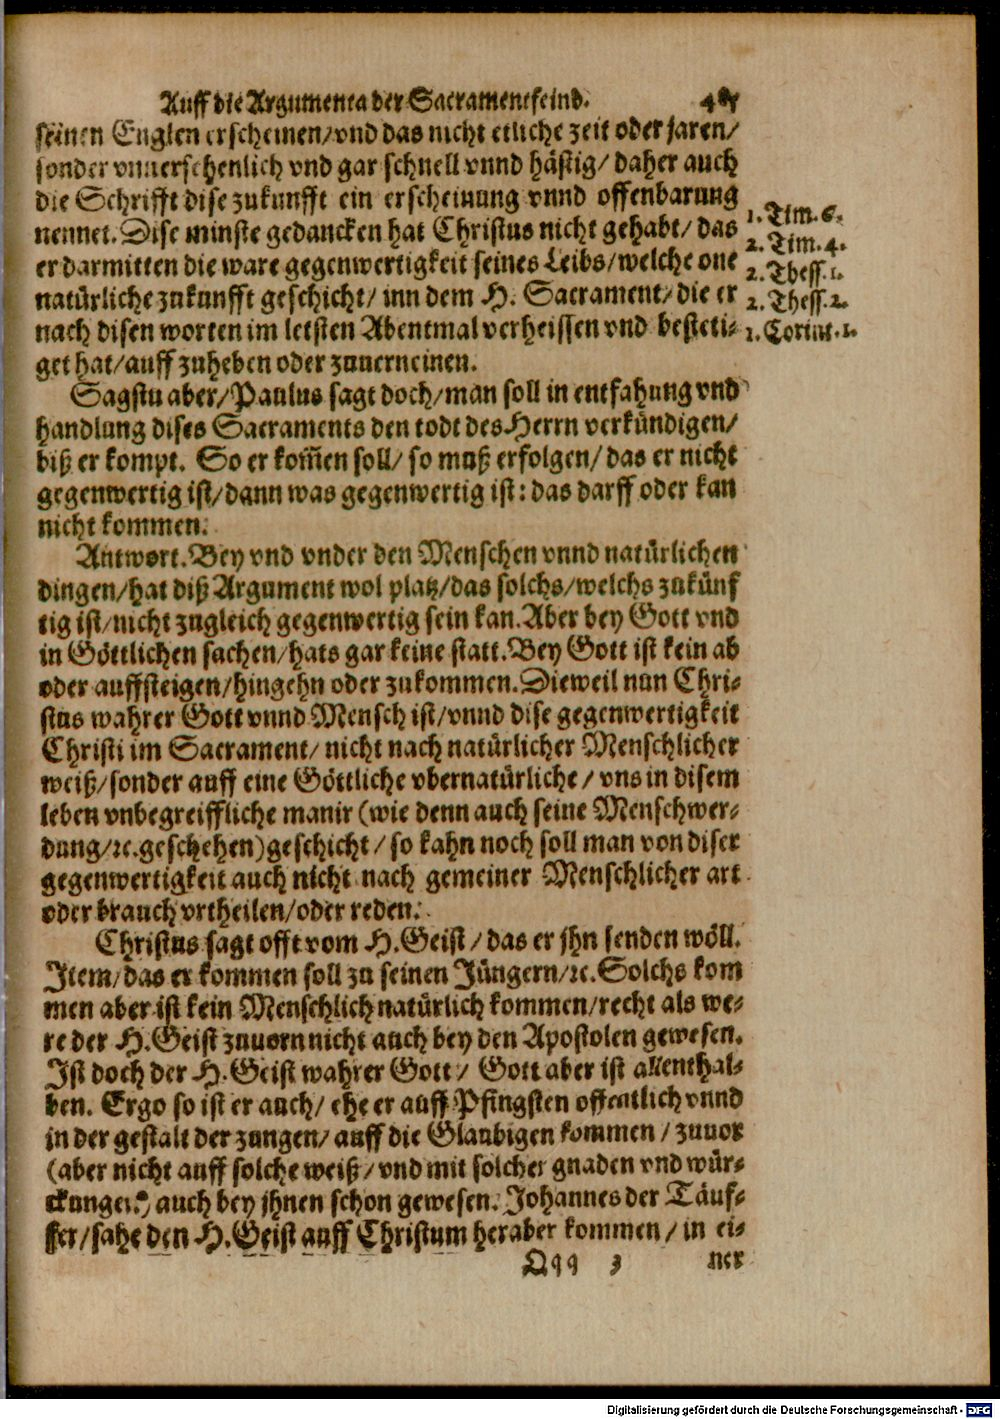 Auff die Argumenta der Sacramentfeind.
seinen Englen erscheinen/vnd das nicht etliche zeit oder jaren/
sonder vnuersehenlich vnd gar schnell vnnd hästig/ daher auch
die Schrifft dise zukunfft ein erscheinung vnnd offenbarung
nennet. Dise minste gedancken hat Christus nicht gehabt/ das
er darmitten die ware gegenwertigkeit seines Leibs/welche one
natürliche zukunfft geschicht/ inn dem H. Sacrament/ die er
nach disen worten im letsten Abentmal verheissen vnd besteti-
get hat/auff zuheben oder zuuerneinen.
1. Tim. 6.
2. Tim. 4.
2. Thess. 1.
2. Thess. 2.
1. Corint. 1.
Sagstu aber/Paulus sagt doch/man soll in entfahung vnd
handlung dises Sacraments den todt des Herrn verkündigen/
biß er kompt. So er kom̃en soll/ so muß erfolgen/ das er nicht
gegenwertig ist/dann was gegenwertig ist: das darff oder kan
nicht kommen.
Antwort. Bey vnd vnder den Menschen vnnd natürlichen
dingen/hat diß Argument wol platz/das solchs/welchs zukünf
tig ist/nicht zugleich gegenwertig sein kan. Aber bey Gott vnd
in Göttlichen sachen/hats gar keine statt. Bey Gott ist kein ab
oder auffsteigen/hingehn oder zukommen. Dieweil nun Chri-
stus wahrer Gott vnnd Mensch ist/vnnd dise gegenwertigkeit
Christi im Sacrament/ nicht nach natürlicher Menschlicher
weiß/sonder auff eine Göttliche vbernatürliche/ vns in disem
leben vnbegreiffliche manir (wie denn auch seine Menschwer-
dung/ꝛc. geschehen) geschicht/ so kahn noch soll man von diser
gegenwertigkeit auch nicht nach gemeiner Menschlicher art
oder brauch vrtheilen/oder reden.
Christus sagt offt vom H. Geist/ das er jhn senden wöll.
Item/das er kommen soll zu seinen Jüngern/ꝛc. Solchs kom
men aber ist kein Menschlich natürlich kommen/recht als we-
re der H. Geist zuuorn nicht auch bey den Apostolen gewesen.
Ist doch der H. Geist wahrer Gott/ Gott aber ist allenthal-
ben. Ergo so ist er auch/ ehe er auff Pfingsten offentlich vnnd
in der gestalt der zungen/ auff die Glaubigen kommen/ zuuor
(aber nicht auff solche weiß/ vnd mit solcher gnaden vnd wür-
ckungen) auch bey jhnen schon gewesen. Johannes der Täuf-
fer/sahe den H. Geist auff Christum heraber kommen/ in ei-
Qqq 3 ner
Digitalisierung gefördert durch die Deutsche Forschungsgemeinschaft - DFG